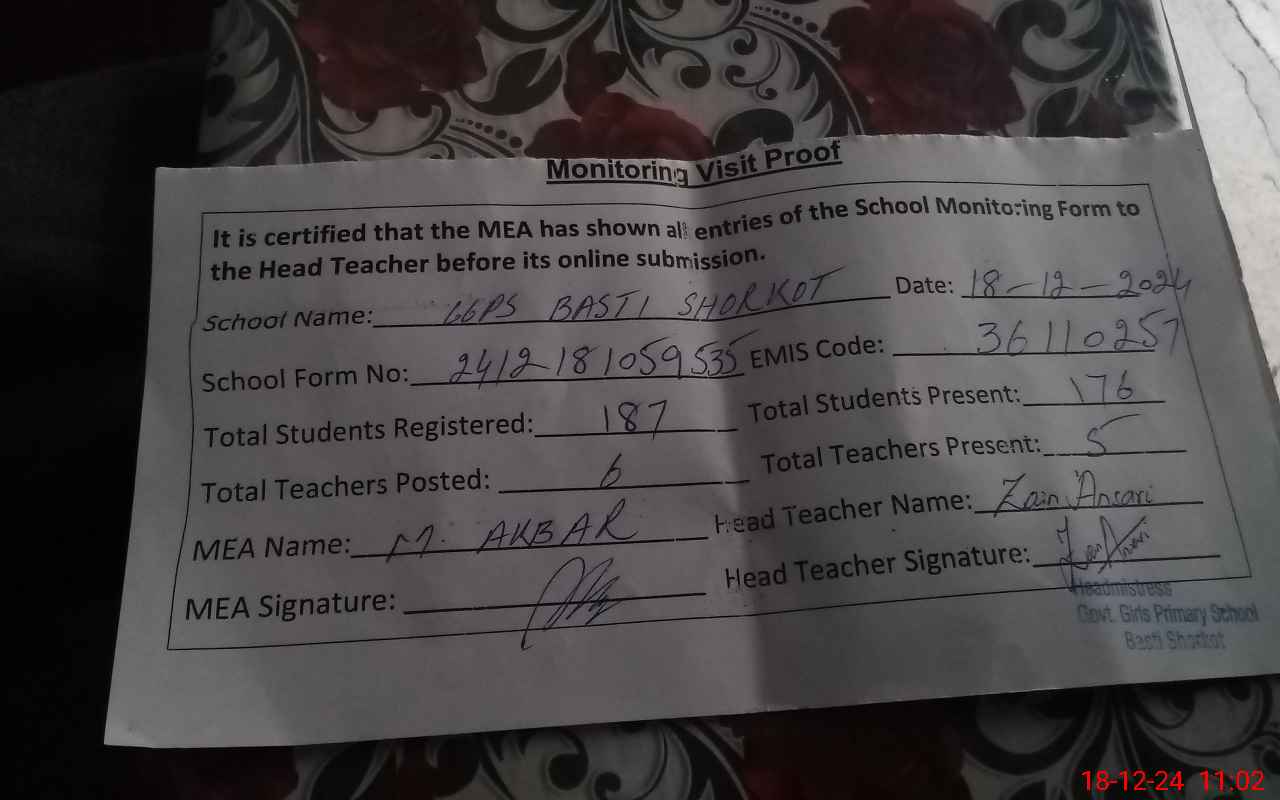 Monitoring Visit Proof
It is certified that the MEA has shown all entries of the School Monitoring Form to
the Head Teacher before its online submission.
School Name: GGPS BASTI SHORKOT Date: 18-12-2024
School Form No: 2412181059535 EMIS Code: 36110257
Total Students Registered: 187 Total Students Present: 176
Total Teachers Posted: 6 Total Teachers Present: 5
MEA Name: M. AKBAR Head Teacher Name: Zain Ansari
MEA Signature: Head Teacher Signature: Zain Ansari
Headmistress
Govt. Girls Primary School
Basti Shorkot
18-12-24 11:02